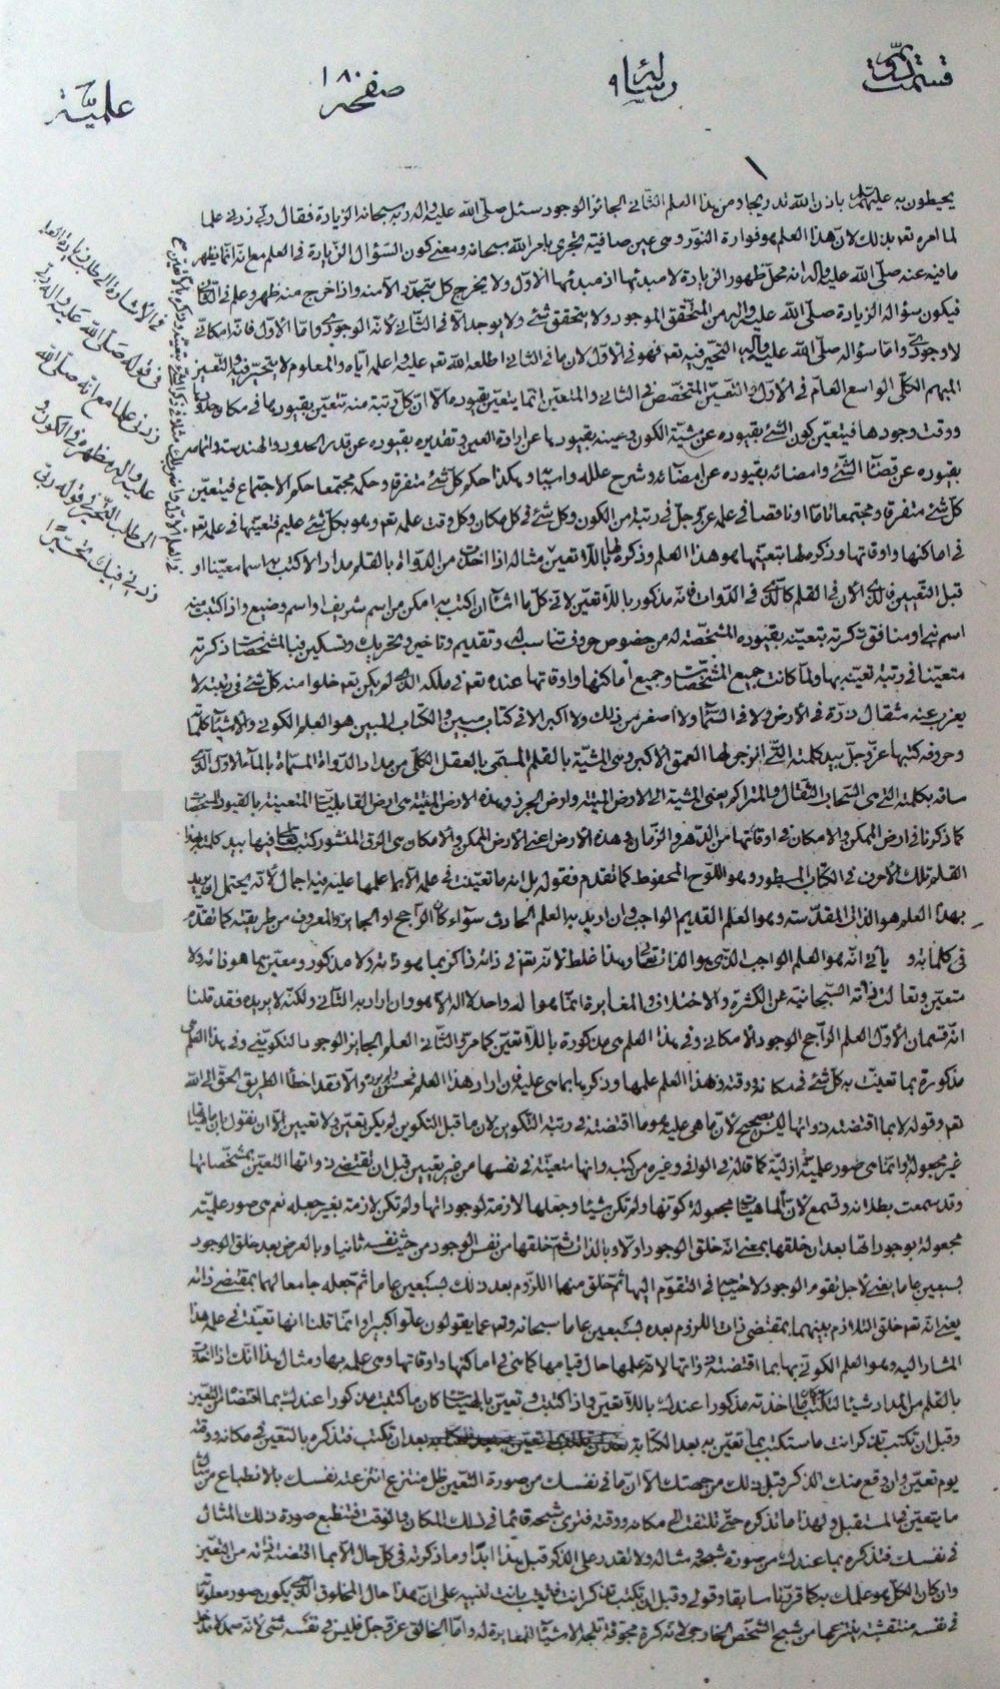 قسمت دوّم رسالة صفحه ۱۸۰ علميّة
يحيطون به باذن الله من هذا العلم الثاني الجائز الوجود سئل صلّى الله عليه واله ربه سبحانه الزيادة فقال ربّ زدني علما
لما امره تعالى بذلك لان هذا العلم هو فوارة النّور وهى عين صافية تجرى بامر الله سبحانه ومعنى كون السّؤال الزّيادة في العلم مع انّه انّما يظهر
ما فيه عنه صلّى الله عليه واله انه محلّ ظهور الزيادة لا مبدئها اذ مبدئها الاوّل ولا يخرج كل متجدّد الّا منه واذا خرج منه ظهر وعلم في
فيكون سؤاله الزيادة صلّى الله عليه واله من المتحقق الموجود ولا يتحقق شئ ولا يوجد الّا في الثّاني لانّه الوجودي وامّا الاوّل فانّه امكاني
لا وجودي وامّا سؤاله صلّى الله عليه واله التحيّر فيه تعالى فهو في الاوّل لان ما في الثاني اطلعه الله تعالى عليه واعلمه ايّاه والمعلوم لا يتحيّر فيه والتّعيّن
المبهم الكلّي الواسع العام في الاوّل والتعيّن المتخصّص في الثاني والمتعيّن انما يتعيّن بقيوده الّا انّ كلّ رتبة منه تتعيّن بقيود ما في مكان
ووقت وجودها فيتعيّن كون الشئ بقيوده عن مشيّة الكون وعينه بقيودها عن ارادة العين وتقديره بقيوده عن قدر الحدود والهندسة واتمامه
بقيوده عن قضاء الشّئ وامضائه بقيوده عن امضائه وشرح علله واسبابه وهكذا حكم كلّ شئ متفرقا وحكمه مجتمعا حكم الاجتماع فيتعيّن
كلّ شئ متفرقا ومجتمعا تاما او ناقصا في علمه عزّ وجل في رتبة من الكون وكل شئ في كل مكان وكل وقت علمه تعالى وهو بكلّ شئ عليم فتعيّنها في علمه تعالى
في اماكنها واوقاتها وذكره لها بتعيّنها هو هذا العلم وذكره لها باللّا تعيّن مثاله اذا اخذت من الدواة بالقلم مدادا لاكتب به اسما معيّنا او
قبل التّعيين فالّذى الان في القلم كالّذى في الدّوات فانّه مذكور باللّا تعيّن لانّي كل ما اشاء ان اكتب به امكن من اسم شريف او اسم وضيع واذا كتبت منه
اسم نبي او منافق ذكرته بتعيّنه بقيوده المشخّصة له من خصوص حروف تناسبه وتقديم وتاخير وتحريك وتسكين فبالمشخّصات ذكرته
متعيّنا في رتبة تعيّنه بها ولمّا كانت جميع المشخّصات وجميع اماكنها واوقاتها عنده تعالى في ملكه الذى لم يكن تعالى خلوا منه كل شئ في رتبته لا
يعزب عنه مثقال ذرّة في الارض ولا في السّماء ولا اصغر من ذلك ولا اكبر الا في كتاب مبين والكتاب المبين هو العلم الكوني والاشياء كلّها
وحروفه كتبها عزّ وجلّ بيد كلمته الّتي انزجر لها العمق الاكبر وهى المشيّة بالقلم المسمّى بالعقل الكلّي من مداد الدّواة المسمّاة بالماء الاوّل الّذى
ساقه بكلمته الّتي هى السّحاب الثّقال والمتراكم يعنى المشيّة الى الارض الميّتة وارض الجرز وهذه الارض الميّتة هى ارض القابليّات المتعينة بالقيود المشخّصات
كما ذكرنا في ارض الممكن والامكان في اوقاتها من الدّهر والزّمان وهذه الارض اعنى الارض الممكن والامكان هى الرّق المنشور كتب فيها بيد كلمته بهذا
القلم تلك الاحرف في الكتاب المسطور وهو اللوح المحفوظ كما تقدم فقوله بل انه ما تعيّنت في علمه الّا بما علمها عليه فيه اجمال لانّه يحتمل ان يريد
بهذا العلم هو الذات المقدّسة وهو العلم القديم الواجب وان اريد به العلم الحادث سواء كان الراجح او الجائز والمعروف من طريقته كما تقدّم
في كلماته ويأتي انّه هو العلم الواجب الّذى هو الذات تعالى وهذا غلط لانّه تعالى في ذاته ذاكر بما هو ذاته ولا مذكور ومعيّن بما هو ذاته ولا
متعيّن وتعالت ذاته السّبحانيّة عن الكثرة والاختلاف والمغايرة انّما هو اله واحد لا اله الّا هو وان اراد به الثّاني ولكنّه لا يريده فقد قلنا
انّه قسمان الاوّل العلم الرّاجح الوجود الامكاني وفي هذا العلم هى مذكورة باللّا تعيّن كما مرّ والثّاني العلم الجائز الوجود التكويني وفي هذا العلم هى
مذكورة بما تعيّنت به كلّ شئ في مكانه ووقته وهذا العلم علمها وذكرها بما هى عليه فان اراد هذا العلم فحسن والّا فقد اخطأ الطريق الحقّ الى الله
تعالى وقوله لا بما اقتضته ذواتها ليس بصحيح لانّ ما هى عليه هو ما اقتضته في رتبة التّكوين لان ما قبل التّكوين لم يكن تعيّن ولا تعيين الّا ان يقول
غير مجعولة وانّما هى صور علميّة ازليّة كما قاله في الوافي وغيره من كتبه وانها متعيّنة في نفسها من غير تعيين قبل ان تقتضى ذواتها التعيّن بمشخّصاتها
وقد سمعت بطلانه وتسمع لانّ الماهيّات مجعولة كوّنها ولم تكن شيئا وجعلها لازمة لوجوداتها ولم تكن لازمة بغير جعله نعم هى صور علميّة
مجعولة بوجوداتها بعد ان خلقها بمعنى انّه خلق الوجود اولا وبالذات ثمّ خلقها من نفس الوجود من حيث نفسه ثانيا وبالعرض بعد خلق الوجود
بسبعين عاما يعنى لاجل تقوم الوجود لاحتياجها في التقوّم اليها ثمّ خلق منهما اللّزوم بعد ذلك بسبعين عاما ثم جعله جامعا لهما بمقتضى ذاته
يعنى انّه تعالى خلق التلازم بينهما بمقتضى ذات اللزوم بعده بسبعين عاما سبحانه وتعالى عما يقولون علوّا كبيرا وانّما قلنا انها تعيّنت في علمه هذا
المشار اليه وهو العلم الكوني بها بما اقتضته ذواتها لانّه علمها حال قيامها كما هى في اماكنها واوقاتها وهى علمه بها ومثال هذا انّك اذا اخذت
بالقلم من المداد شيئا لتكتب كان ما اخذته مذكورا عندك باللّا تعيّن فاذا كتبت وتعيّن بالهيئات كان ما كتبت مذكورا عندك بما اقتضاه من التعيّن
وقبل ان تكتب تذكر انت ما ستكتب بما تعيّن به بعد الكتابة بعد ان تكتب فتذكره بالتعيّن في مكانه ووقته
يوم تعيّن وان وقع منك الذكر قبل ذلك من جهتك لا انّ ما في نفسك من صورة التّعيّن ظل منتزع انتزعته نفسك بالانطباع من مثال
ما يتعيّن في المستقبل ولهذا ما تذكره حتّى تلتفت الى مكانه ووقته فترى شبحه قائما في ذلك المكان والوقت فتنطبع صورة ذلك المثال
في نفسك فتذكره بما عندك من صورة شبحه ومثاله ولا تقدر على الذكر قبل هذا ابدا وما ذكرته في كل حال الّا بما اقتضته ذاته من التعيّن
وان كان الكلّ هو علمك به كما قررنا سابقا وقولي وقبل ان تكتب تذكر انت فاتيت بانت لنبيه على انّ هذا حال المخلوق الّذى يكون صور معلومه
في نفسه منتقشة ينتزعها من شبح الشّخص الخارجي لانّه كرة مجوّفة تلجه الاشياء المغايرة له وامّا الخالق عزّ وجلّ فليس في نفسه شئ لانّه صمد لا مدخل
في قوله صلّى الله عليه واله
زدني علما مع انّه صلّى الله
عليه واله مظهره في الكون
الى طلب التّحيّر في قوله ربّ
زدني فيك تحيّرا